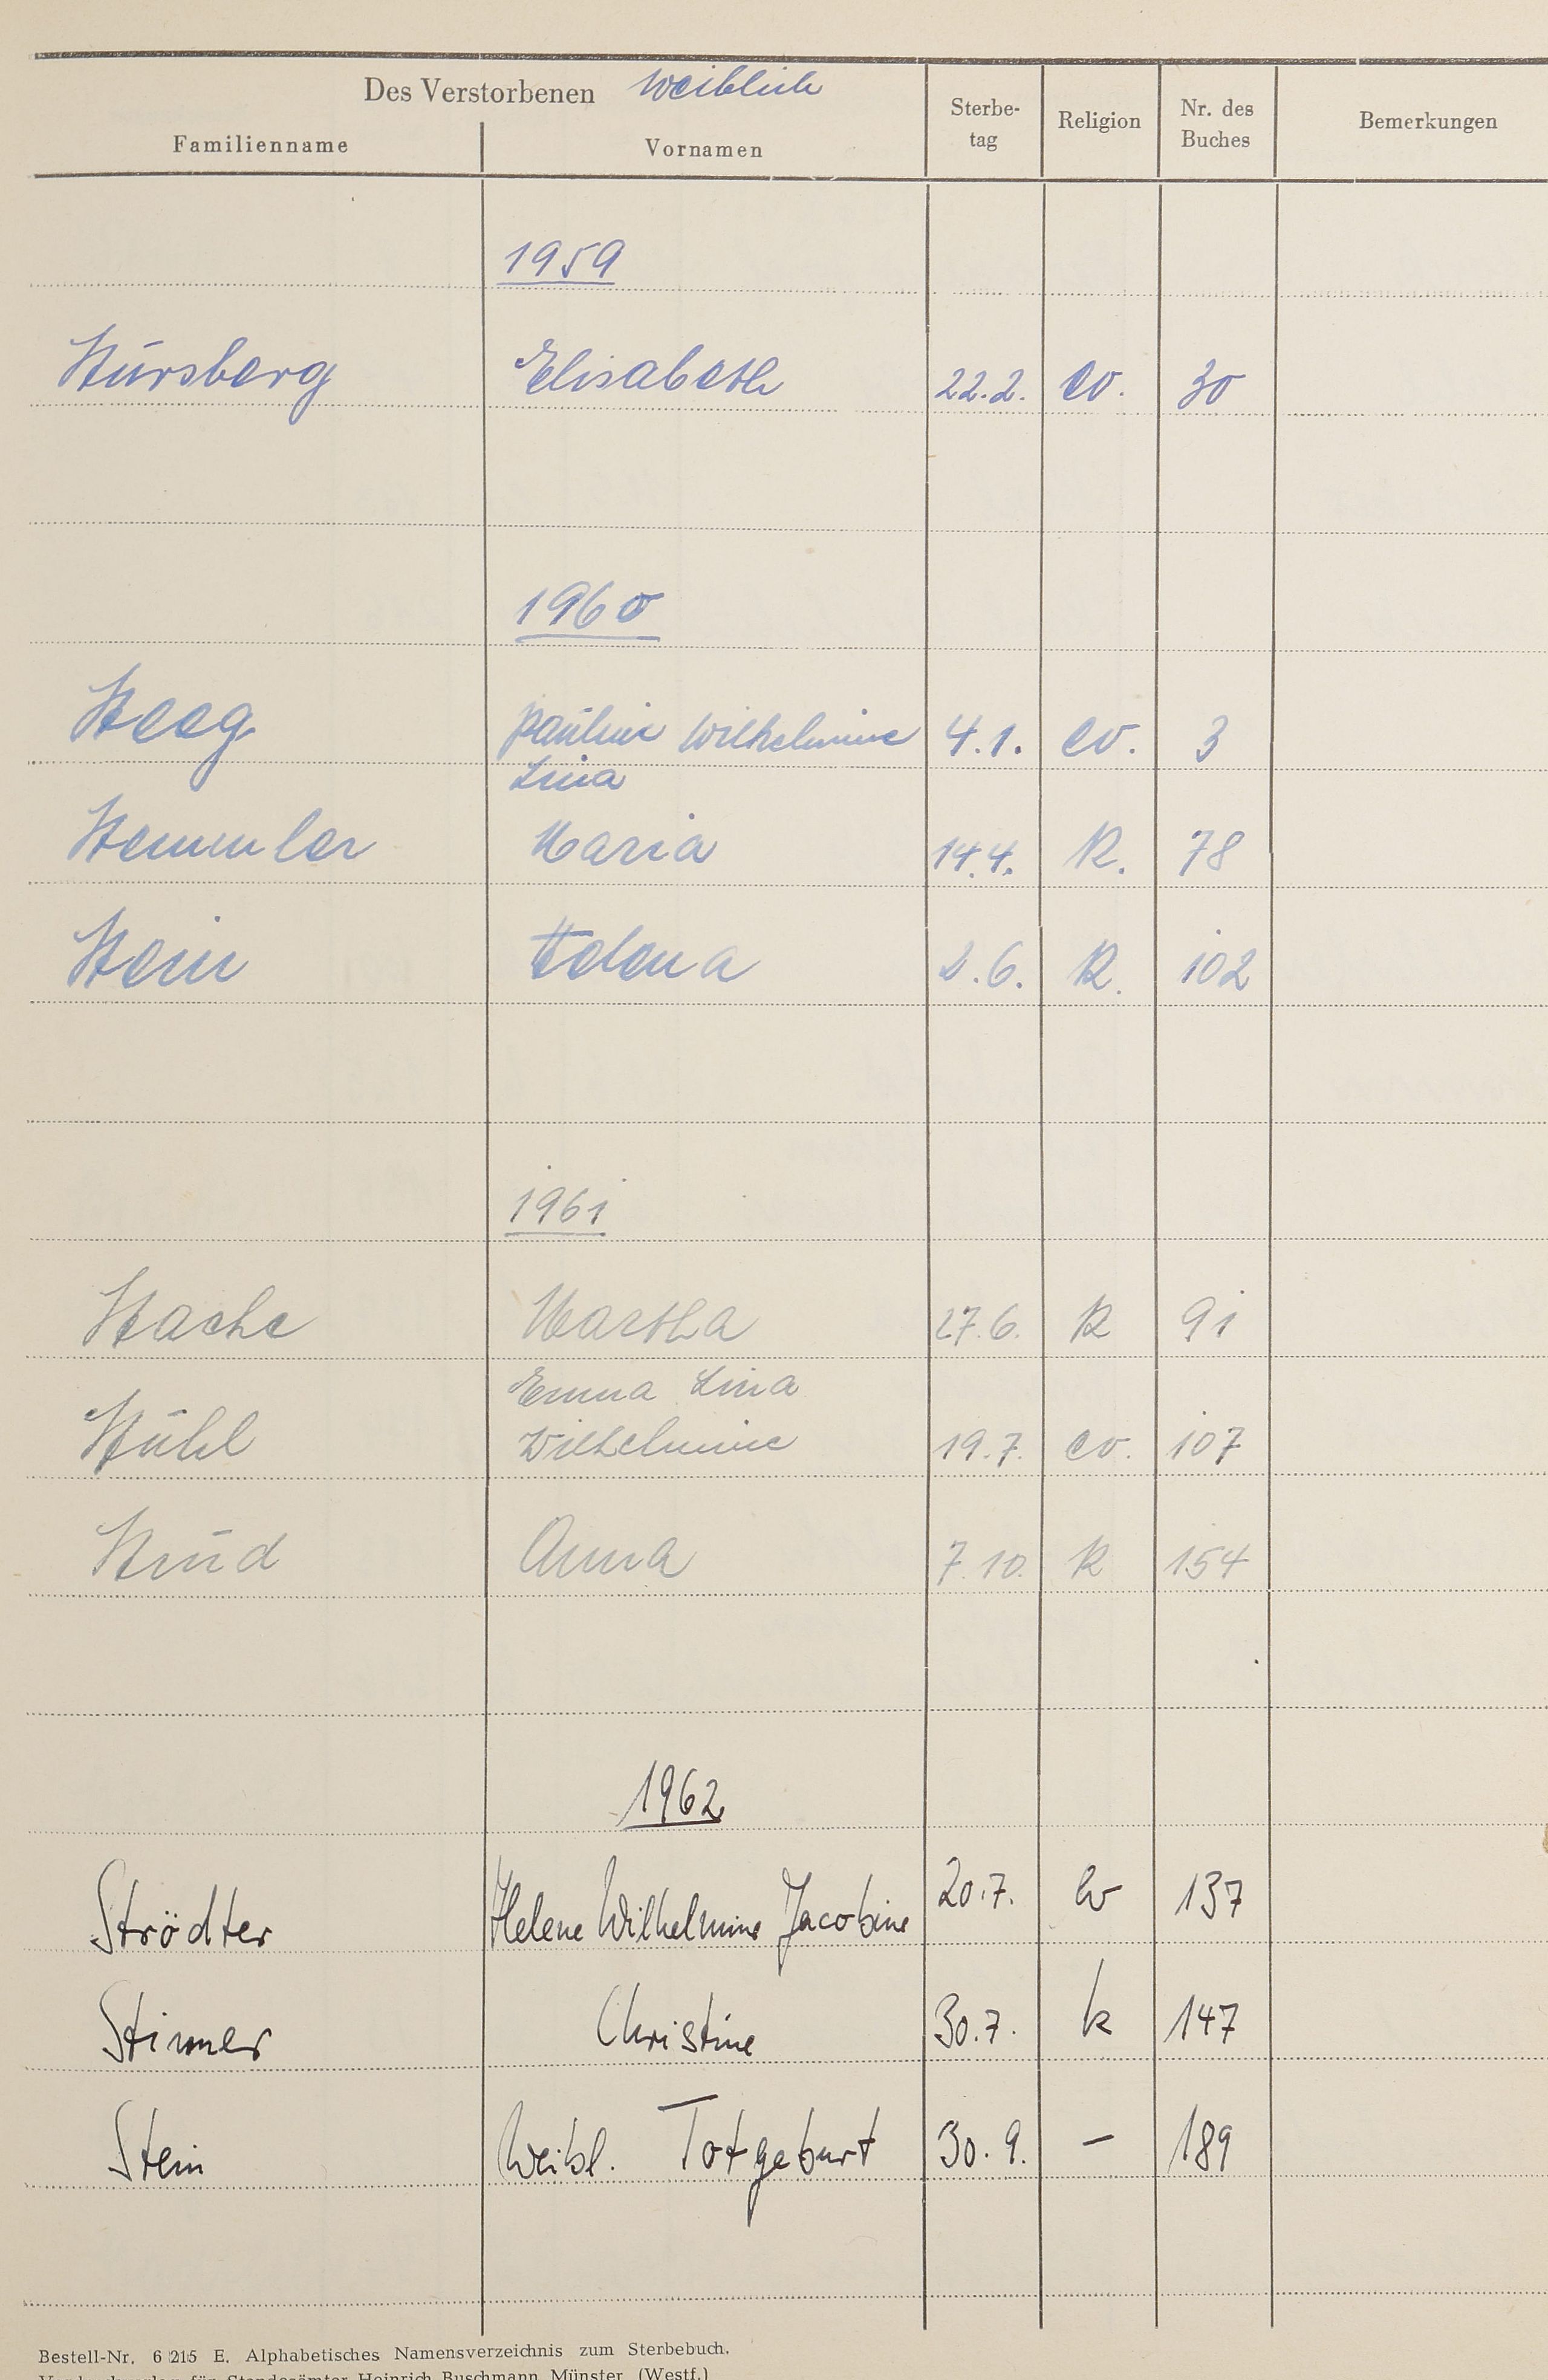 Des Verstorbenen weiblich
Familienname Vornamen Sterbe-tag Religion Nr. des Buches Bemerkungen
1959
Stursberg Elisabeth 22.2. ev. 30
1960
Steeg Pauline Wilhelmine 4.1. ev. 3
Lina
Stemmler Maria 14.4. K. 78
Stein Helena 2.6. K. 102
1961
Stache Martha 27.6. K 91
Emma Lina
Stühl Wilhelmine 19.7. ev. 107
Strud Anna 7.10. K 154
1962
Strödter Helene Wilhelmine Jacobine 20.7. ev 137
Stirmer Christine 30.7. k 147
Stein Weibl. Totgeburt 30.9. — 189
Bestell-Nr. 6 215 E. Alphabetisches Namensverzeichnis zum Sterbebuch.
Standesämter Heinrich Buschmann, Münster (Westf.)